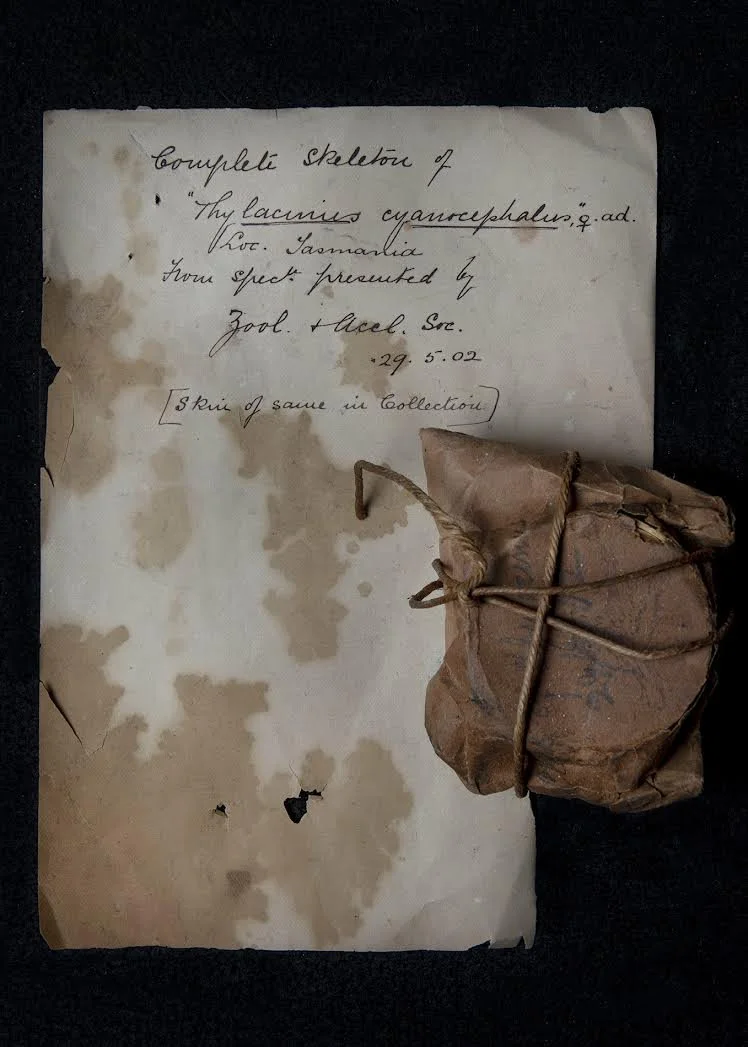 Complete Skeleton of
"Thylacinus cyanocephalus," ♀. ad.
Loc. Tasmania
From spect. presented by
Zool. & Accl. Soc.
29. 5. 02
[Skin of same in Collection]